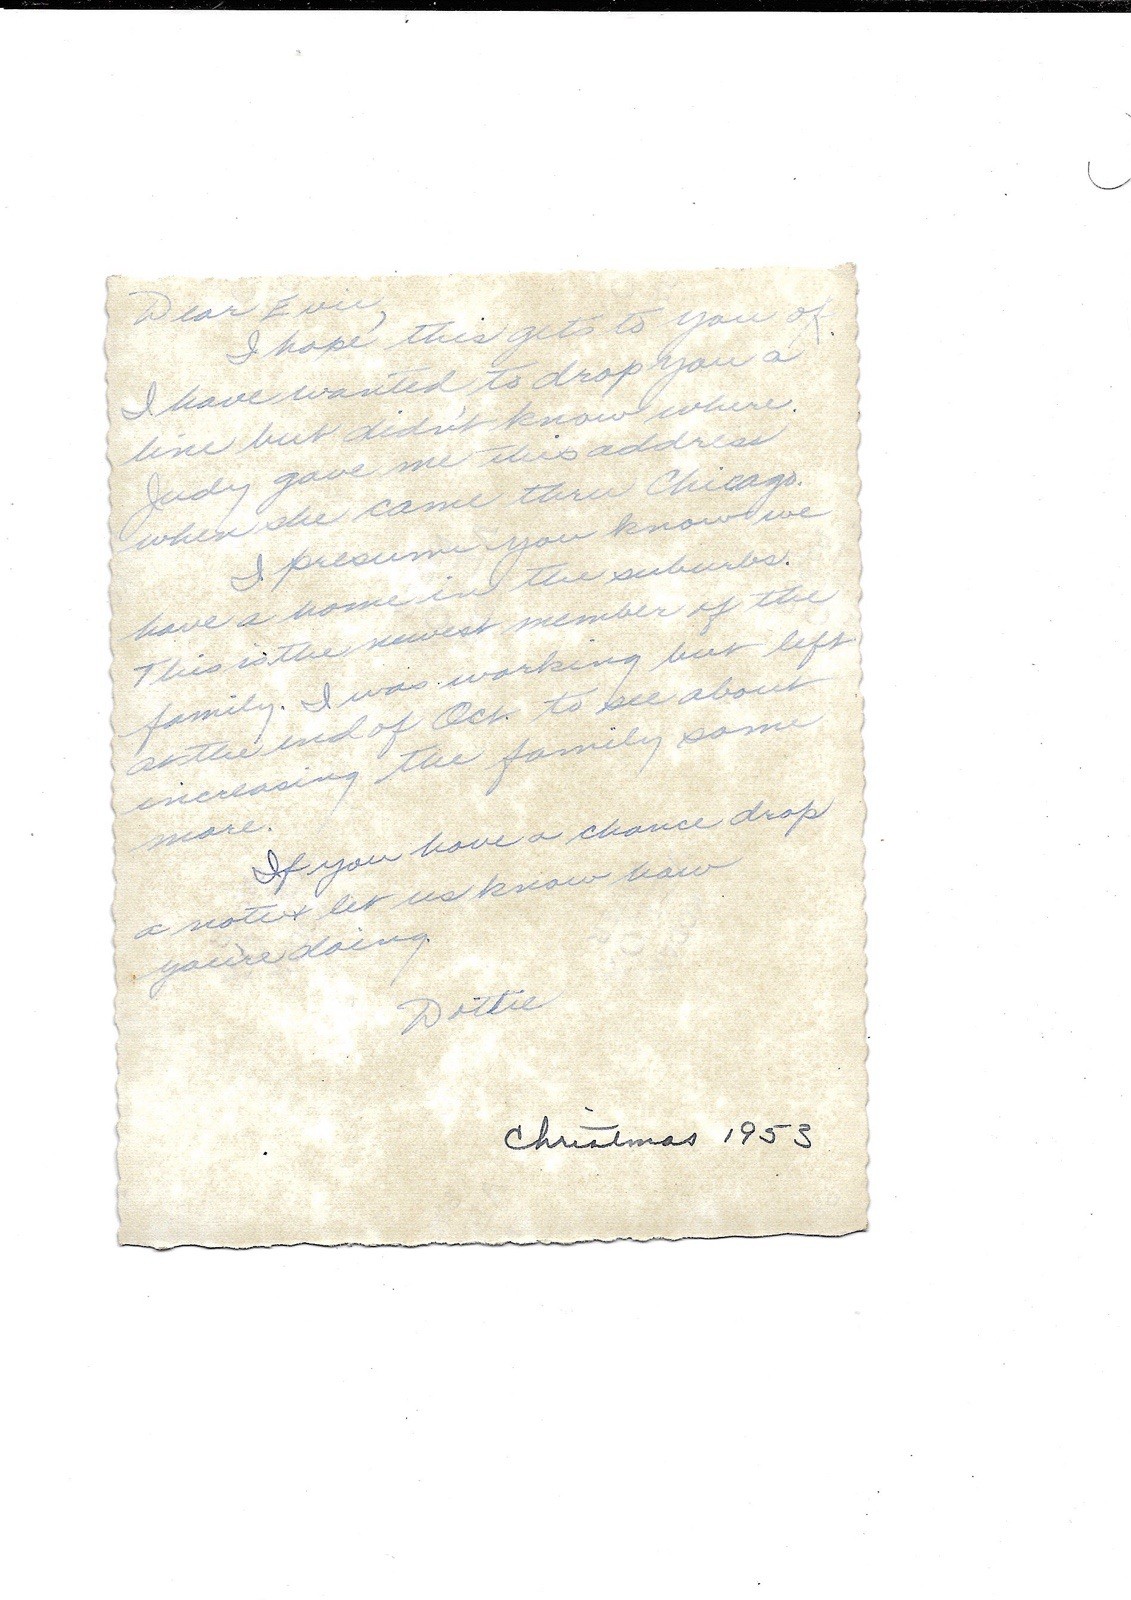 Dear Evie,
I hope this gets to you ok.
I have wanted to drop you a
line but didn't know where.
Judy gave me this address
when she came thru Chicago.
I presume you know we
have a home in the suburbs.
This is the newest member of the
family. I was working but left
at the end of Oct. to see about
increasing the family some
more.
If you have a chance drop
a note & let us know how
you're doing.
Dottie
Christmas 1953